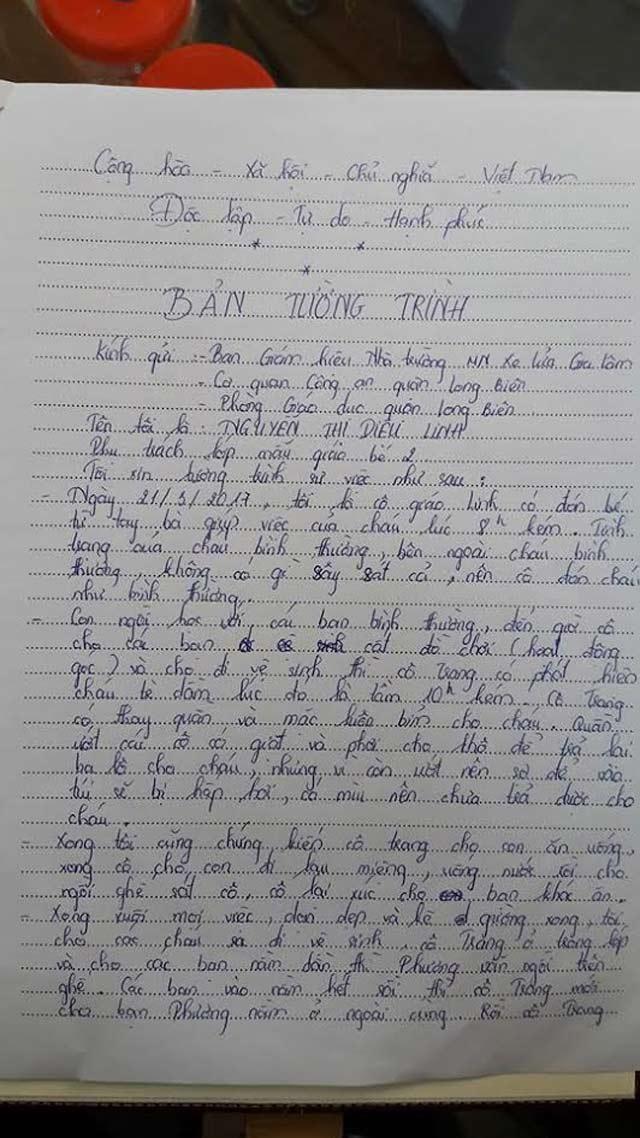 Cộng hòa - Xã hội - Chủ nghĩa - Việt Nam
Độc lập - Tự do - Hạnh phúc
* *
*
BẢN TƯỜNG TRÌNH
Kính gửi : - Ban Giám hiệu Nhà trường MN Xe lửa Gia lâm
- Cơ quan Công an quận Long Biên
- Phòng Giáo dục quận Long Biên
Tên tôi là : NGUYỄN THỊ DIỆU LINH
Phụ trách lớp mẫu giáo bé 2
Tôi xin tường trình sự việc như sau :
- Ngày 21/3/2017, tôi là cô giáo Linh có đón bé
từ tay bà việc của cháu lúc 8h kém. Tình
trạng của cháu bình thường, bên ngoài cháu bình
thường, không có gì sây sát cả, nên cô đón cháu
như bình thường.
- Con ngồi học với các bạn bình thường, đến giờ cô
cho các bạn cất đồ chơi (hoạt động
góc) và cho đi vệ sinh thì cô Trang có phát hiện
cháu tè dầm lúc đó là tầm 10h kém. Cô Trang
có thay quần và mặc luôn bỉm cho cháu. Quần
ướt các cô có giặt và phơi cho khô để trả lại
ba lô cho cháu, nhưng vì còn ướt nên sợ để vào
túi sẽ bị hấp hơi, có mùi nên chưa trả được cho
cháu.
- Xong tôi cũng chứng kiến cô trang cho con ăn uống,
xong cô cho con đi lau miệng, uống nước rồi cho
ngồi ghế sát cô, cô lại xúc cho bạn khác ăn.
- Xong xuôi mọi việc, dọn dẹp và kê giường xong, tôi
cho các cháu đi vệ sinh, cô Trang ở trong lớp
và cho các bạn nằm dần thì Phương vẫn ngồi trên
ghế. Các bạn vào nằm hết rồi thì cô Trang mới
cho bạn Phương nằm ở ngoài cùng. Rồi cô Trang